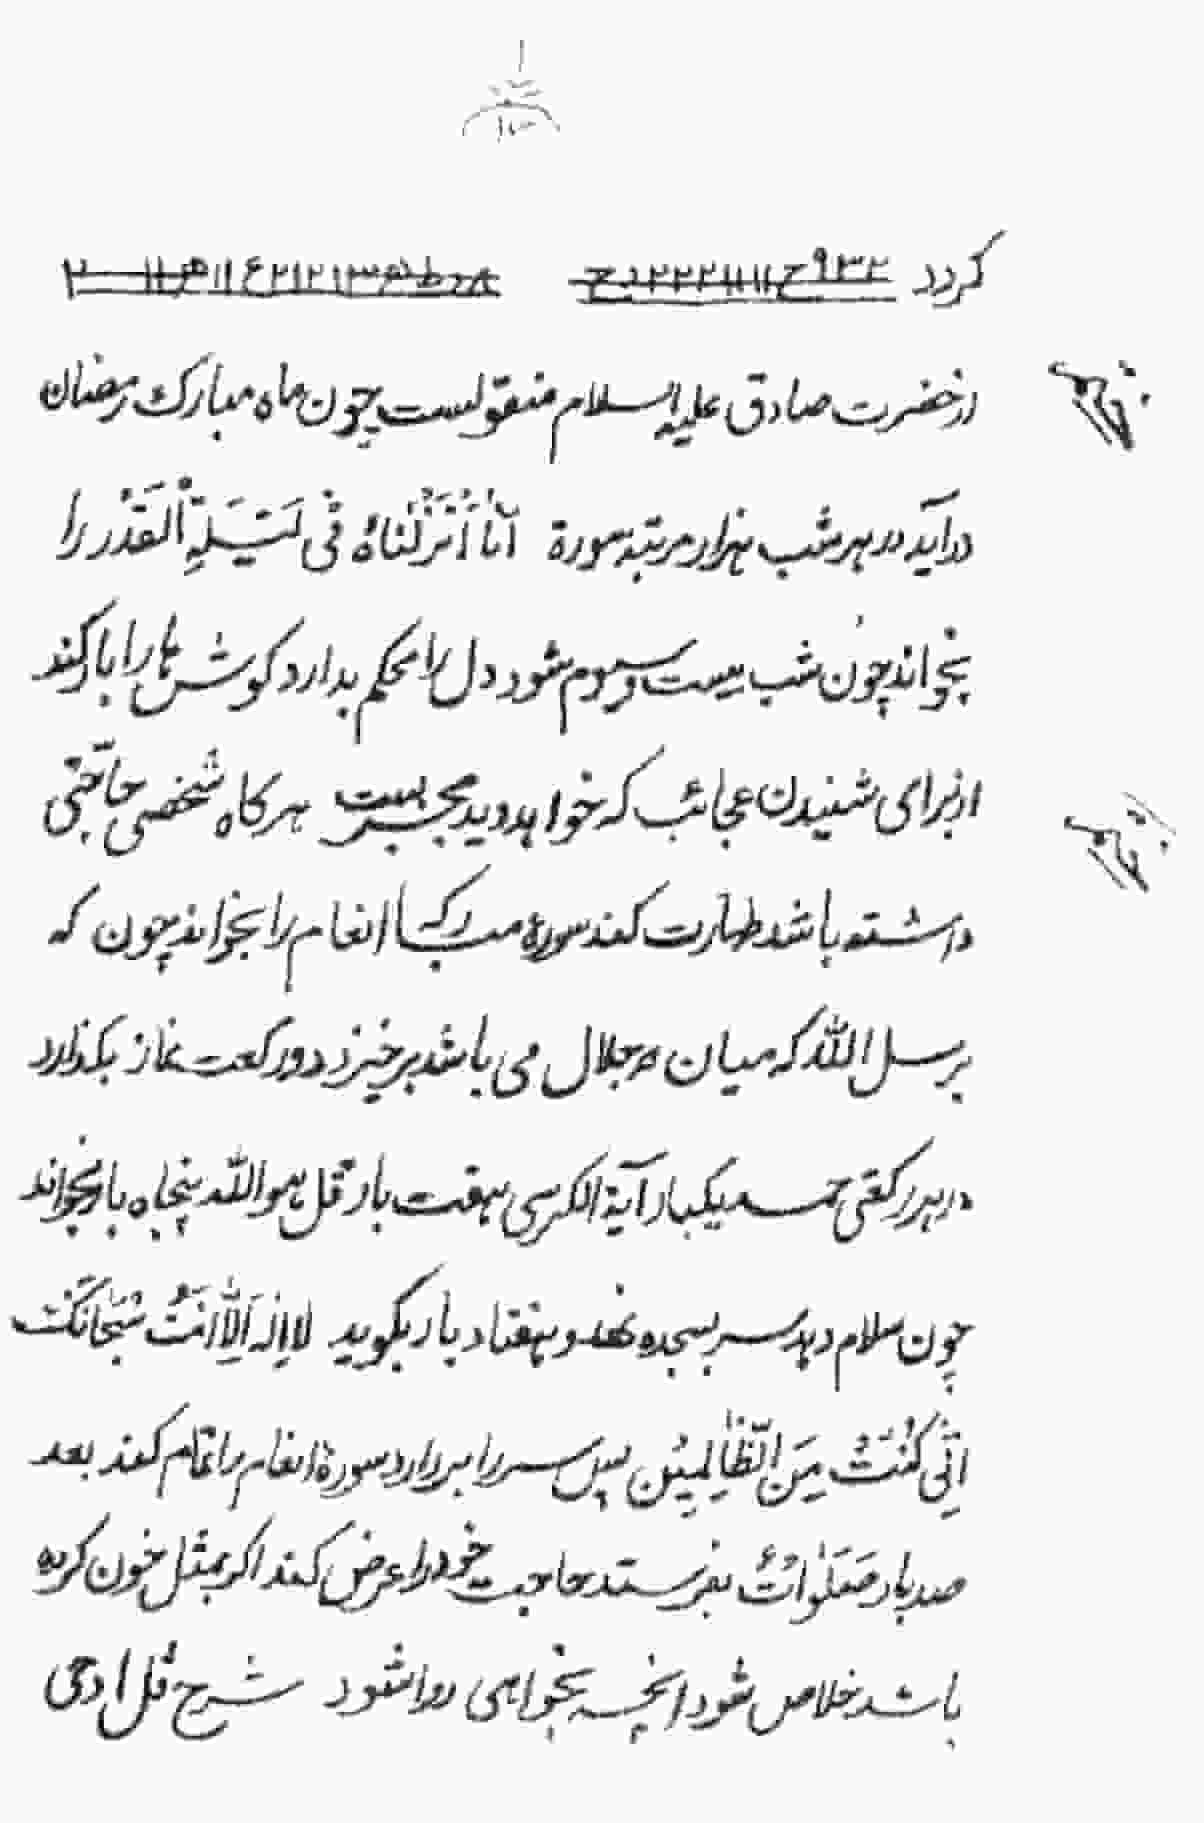 گردد
از حضرت صادق علیه السلام منقولست چون ماه مبارک رمضان
درآید در هر شب هزار مرتبه سورة اَنّا اَنْزَلْناهُ فی لَیْلَةِ اَلْقَدْر را
بخواند چون شب بیست و سیوم شود دل را محکم بدارد گوش ها را باز کند
از برای شنیدن عجائب که خواهد دید مجربست هر کاه شخصی حاجَتی
داشته باشد طهارت کند سورۀ مبارکه انعام را بخواند چون که
برسل الله که میان دو جلال می باشد برخیزد دو رکعت نماز بگذارد
در هر رکعتی حمد یکبار آیة الکرسی هفت بار قل هو الله پنجاه بار بخواند
چون سلام دهد سر بسجده نهد و هفتاد بار بگوید لا اِلهَ اِلّا اَنْتَ سُبْحانَکَ
اِنّی کُنْتُ مِنَ الظّالِمیْنَ پس سر را بردارد سورۀ انعام را تمام کند بعد
صد بار صَلَواتْ بفرستد حاجت خود را عرض کند اگر بمثل خون کرده
باشد خلاص شود انچه بخواهی روا شود شرح قُل اوحی